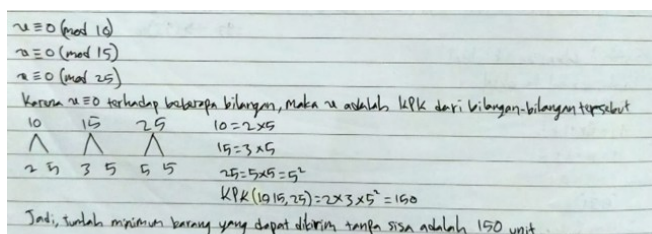 x ≡ 0 (mod 10)
x ≡ 0 (mod 15)
x ≡ 0 (mod 25)
Karena x ≡ 0 terhadap beberapa bilangan, maka x adalah KPK dari bilangan-bilangan tersebut
10 15 25 10 = 2 x 5
15 = 3 x 5
2 5 3 5 5 5 25 = 5 x 5 = 5²
KPK (10, 15, 25) = 2 x 3 x 5² = 150
Jadi, jumlah minimum barang yang dapat dikirim tanpa sisa adalah 150 unit